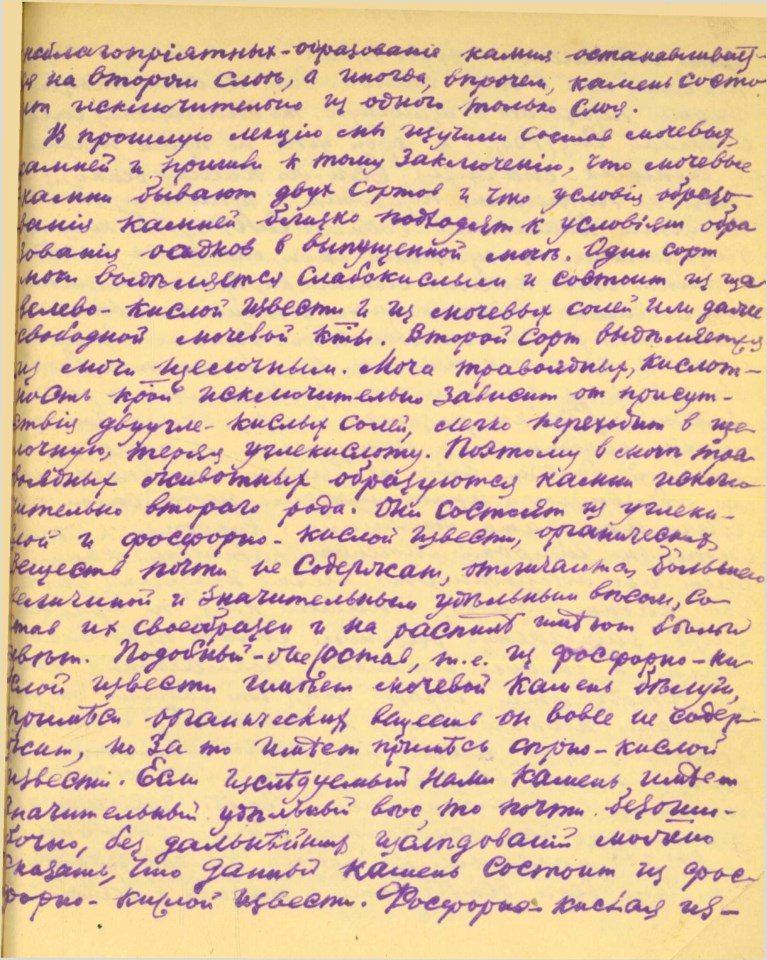 неблагопріятных - образованіе камня останавливает-
ся на втором слоѣ, а иногда, впрочем, камень состо
ит исключительно из одного только слоя.
В прошлую лекцію мы изучили состав мочевых
камней и пришли к тому заключенію, что мочевые
камни бывают двух сортов и что условія образо
ванія камней близко подходят к условіям обра
зованія осадков в выпущенной мочѣ. Один сорт
мочи выдѣляется слабокислым и состоит из ща
велево-кислой извести и из мочевых солей или даже
свободной мочевой к-ты. Второй сорт выдѣляется
из мочи щелочным. Моча травоядных, кислот-
ность к-рой исключительно зависит от присут-
ствія двуугле-кислых солей, легко переходит в ще
лочную, теряя углекислоту. Поэтому в мочѣ тра
воядных животных образуются камни исклю
чительно второго рода. Они состоят из углеки-
слой и фосфорно-кислой извести, органических
веществ почти не содержат, отличаются большею
величиной и значительным удѣльным вѣсом, со
став их своеобразен и на распилѣ имѣют бѣлый
цвѣт. Подобный состав, т.е. из фосфорно-ки
слой извести имѣет мочевой камень бѣлуги,
примѣси органических веществ он вовсе не содер
жит, но за то имѣет примѣсь сѣрно-кислой
извести. Если изслѣдуемый нами камень имѣет
значительный удѣльный вѣс, то почти безоши-
бочно, без дальнѣйших изслѣдованій можно
сказать, что данный камень состоит из фос-
форно-кислой извести. Фосфорно-кислая из-